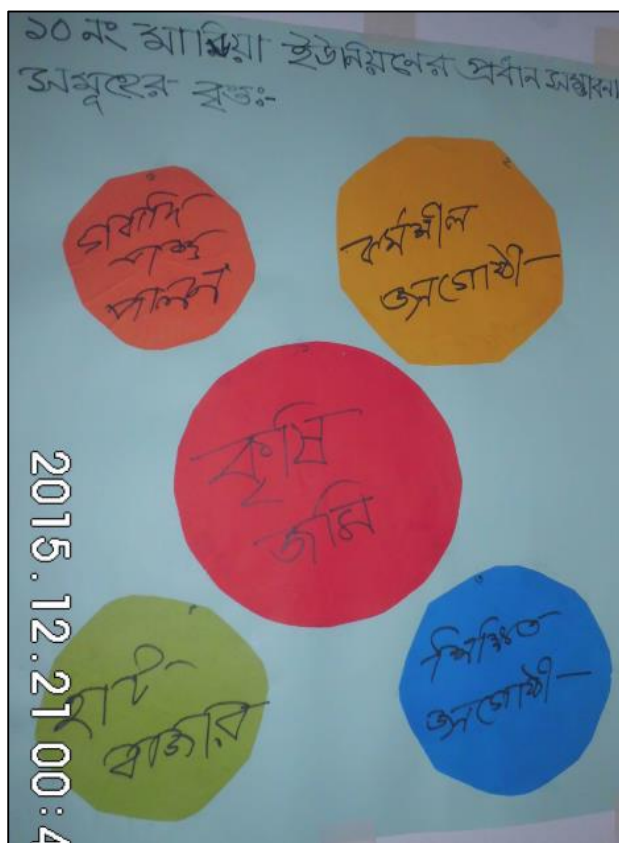 ১০ নং মারিয়া ইউনিয়নের প্রধান সম্ভাবনা
সমূহের বৃত্তঃ-
গবাদি
পশু
পালন
কর্মশীল
জনগোষ্ঠী
কৃষি
জমি
হাট
বাজার
শিক্ষিত
জনগোষ্ঠী
2015.12.21 00:4